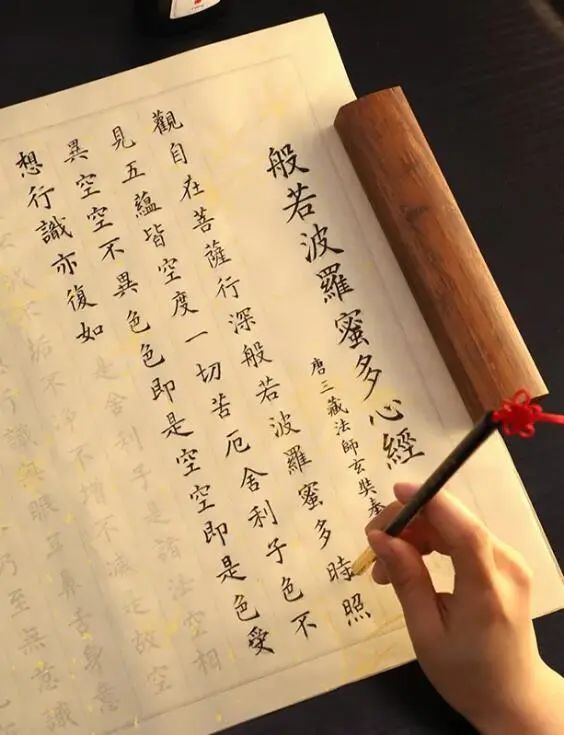 般若波羅蜜多心經
唐三藏法師玄奘奉
觀自在菩薩行深般若波羅蜜多時照
見五蘊皆空度一切苦厄舍利子色不
異空空不異色色即是空空即是色受
想行識亦復如是舍利子是諸法空相
垢不淨不增不減是故空
行識無眼耳鼻舌身意
乃至無意識